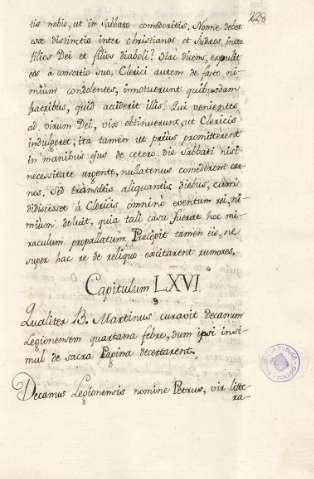 228
tis nobis, ut in Sabbato comederitis, Nonne decet
esse distinctio inter Christianos et Judæos, inter
filios Dei et filios diaboli? Hæc dicens, expulit
eos à conspectu suo, Clerici autem de facto ni-
mium condolentes, innotuerunt quibusdam
fratribus, quid acciderit illis: Qui venientes
ad virum Dei, vix obtinuerunt, ut Clericis
indulgeret, ita tamen ut prius promitterent
in manibus ejus de cetero die Sabbati nisi
necessitate urgente, nullatenus comederent car-
nes. Sed transactis aliquantis diebus, cum
didicisset à Clericis omnino eventum rei, ni-
mium doluit, quia tali casu fuerat hoc mi-
raculum propallatum Præcepit tamen eis, ne
super hac re de reliquo excitarent rumores.
Capitulum LXVI
Qualiter B. Martinus curavit Decanum
Legionensem quartana febre, dum ipsi insi-
mul de sacra Pagina decertarent.
Decanus Legionensis nomine Petrus, vir litte-
ra-